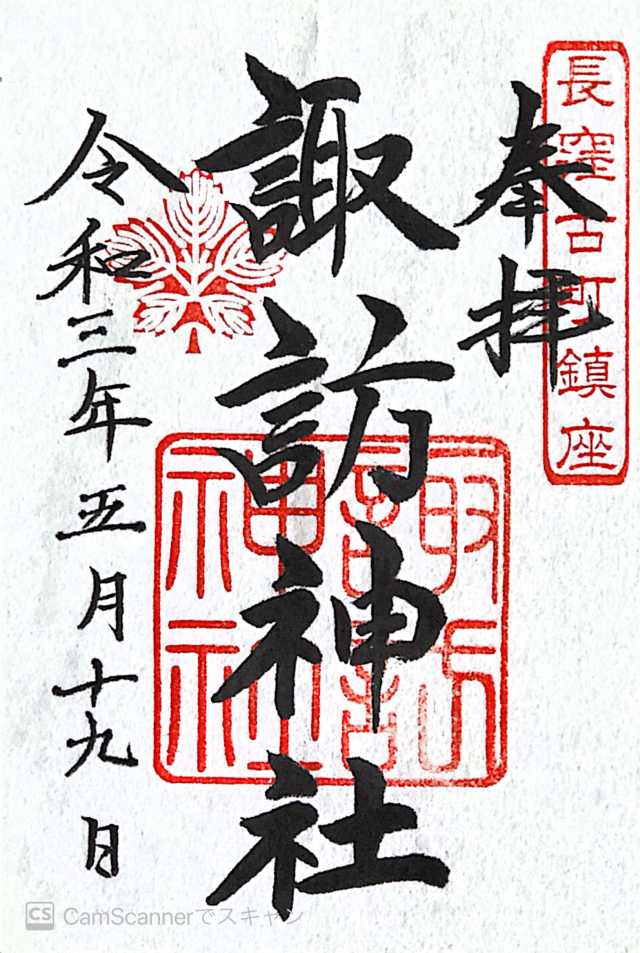 長窪古町鎮座
奉拝
諏訪神社
諏訪
神社
令和三年五月十九日
CS CamScannerでスキャン